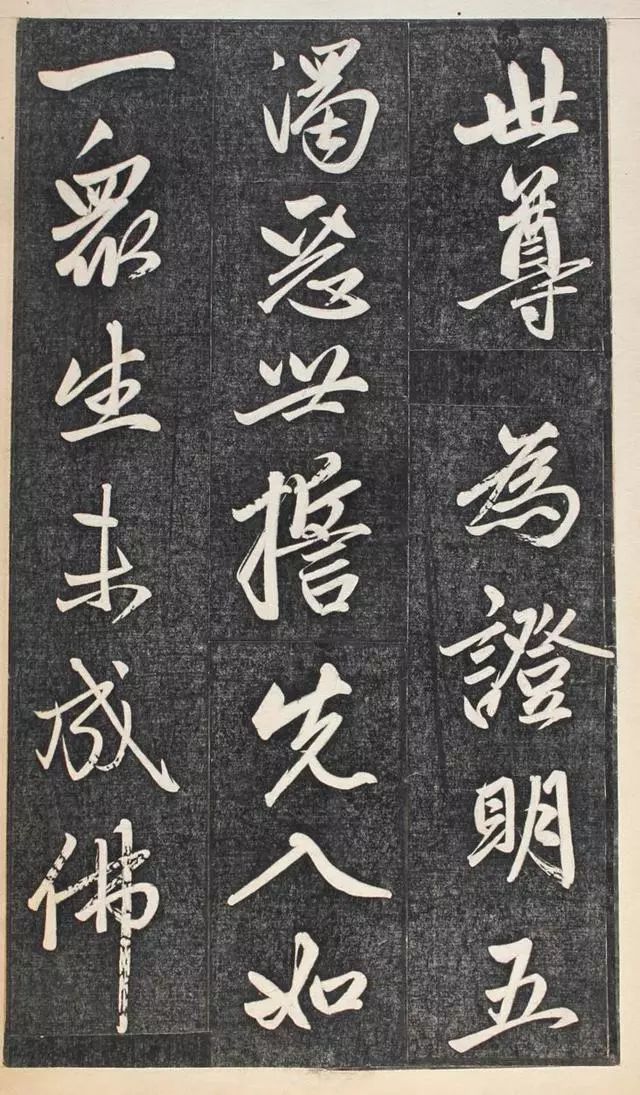 世尊為證明五
濁惡世誓先入如
一衆生未成佛